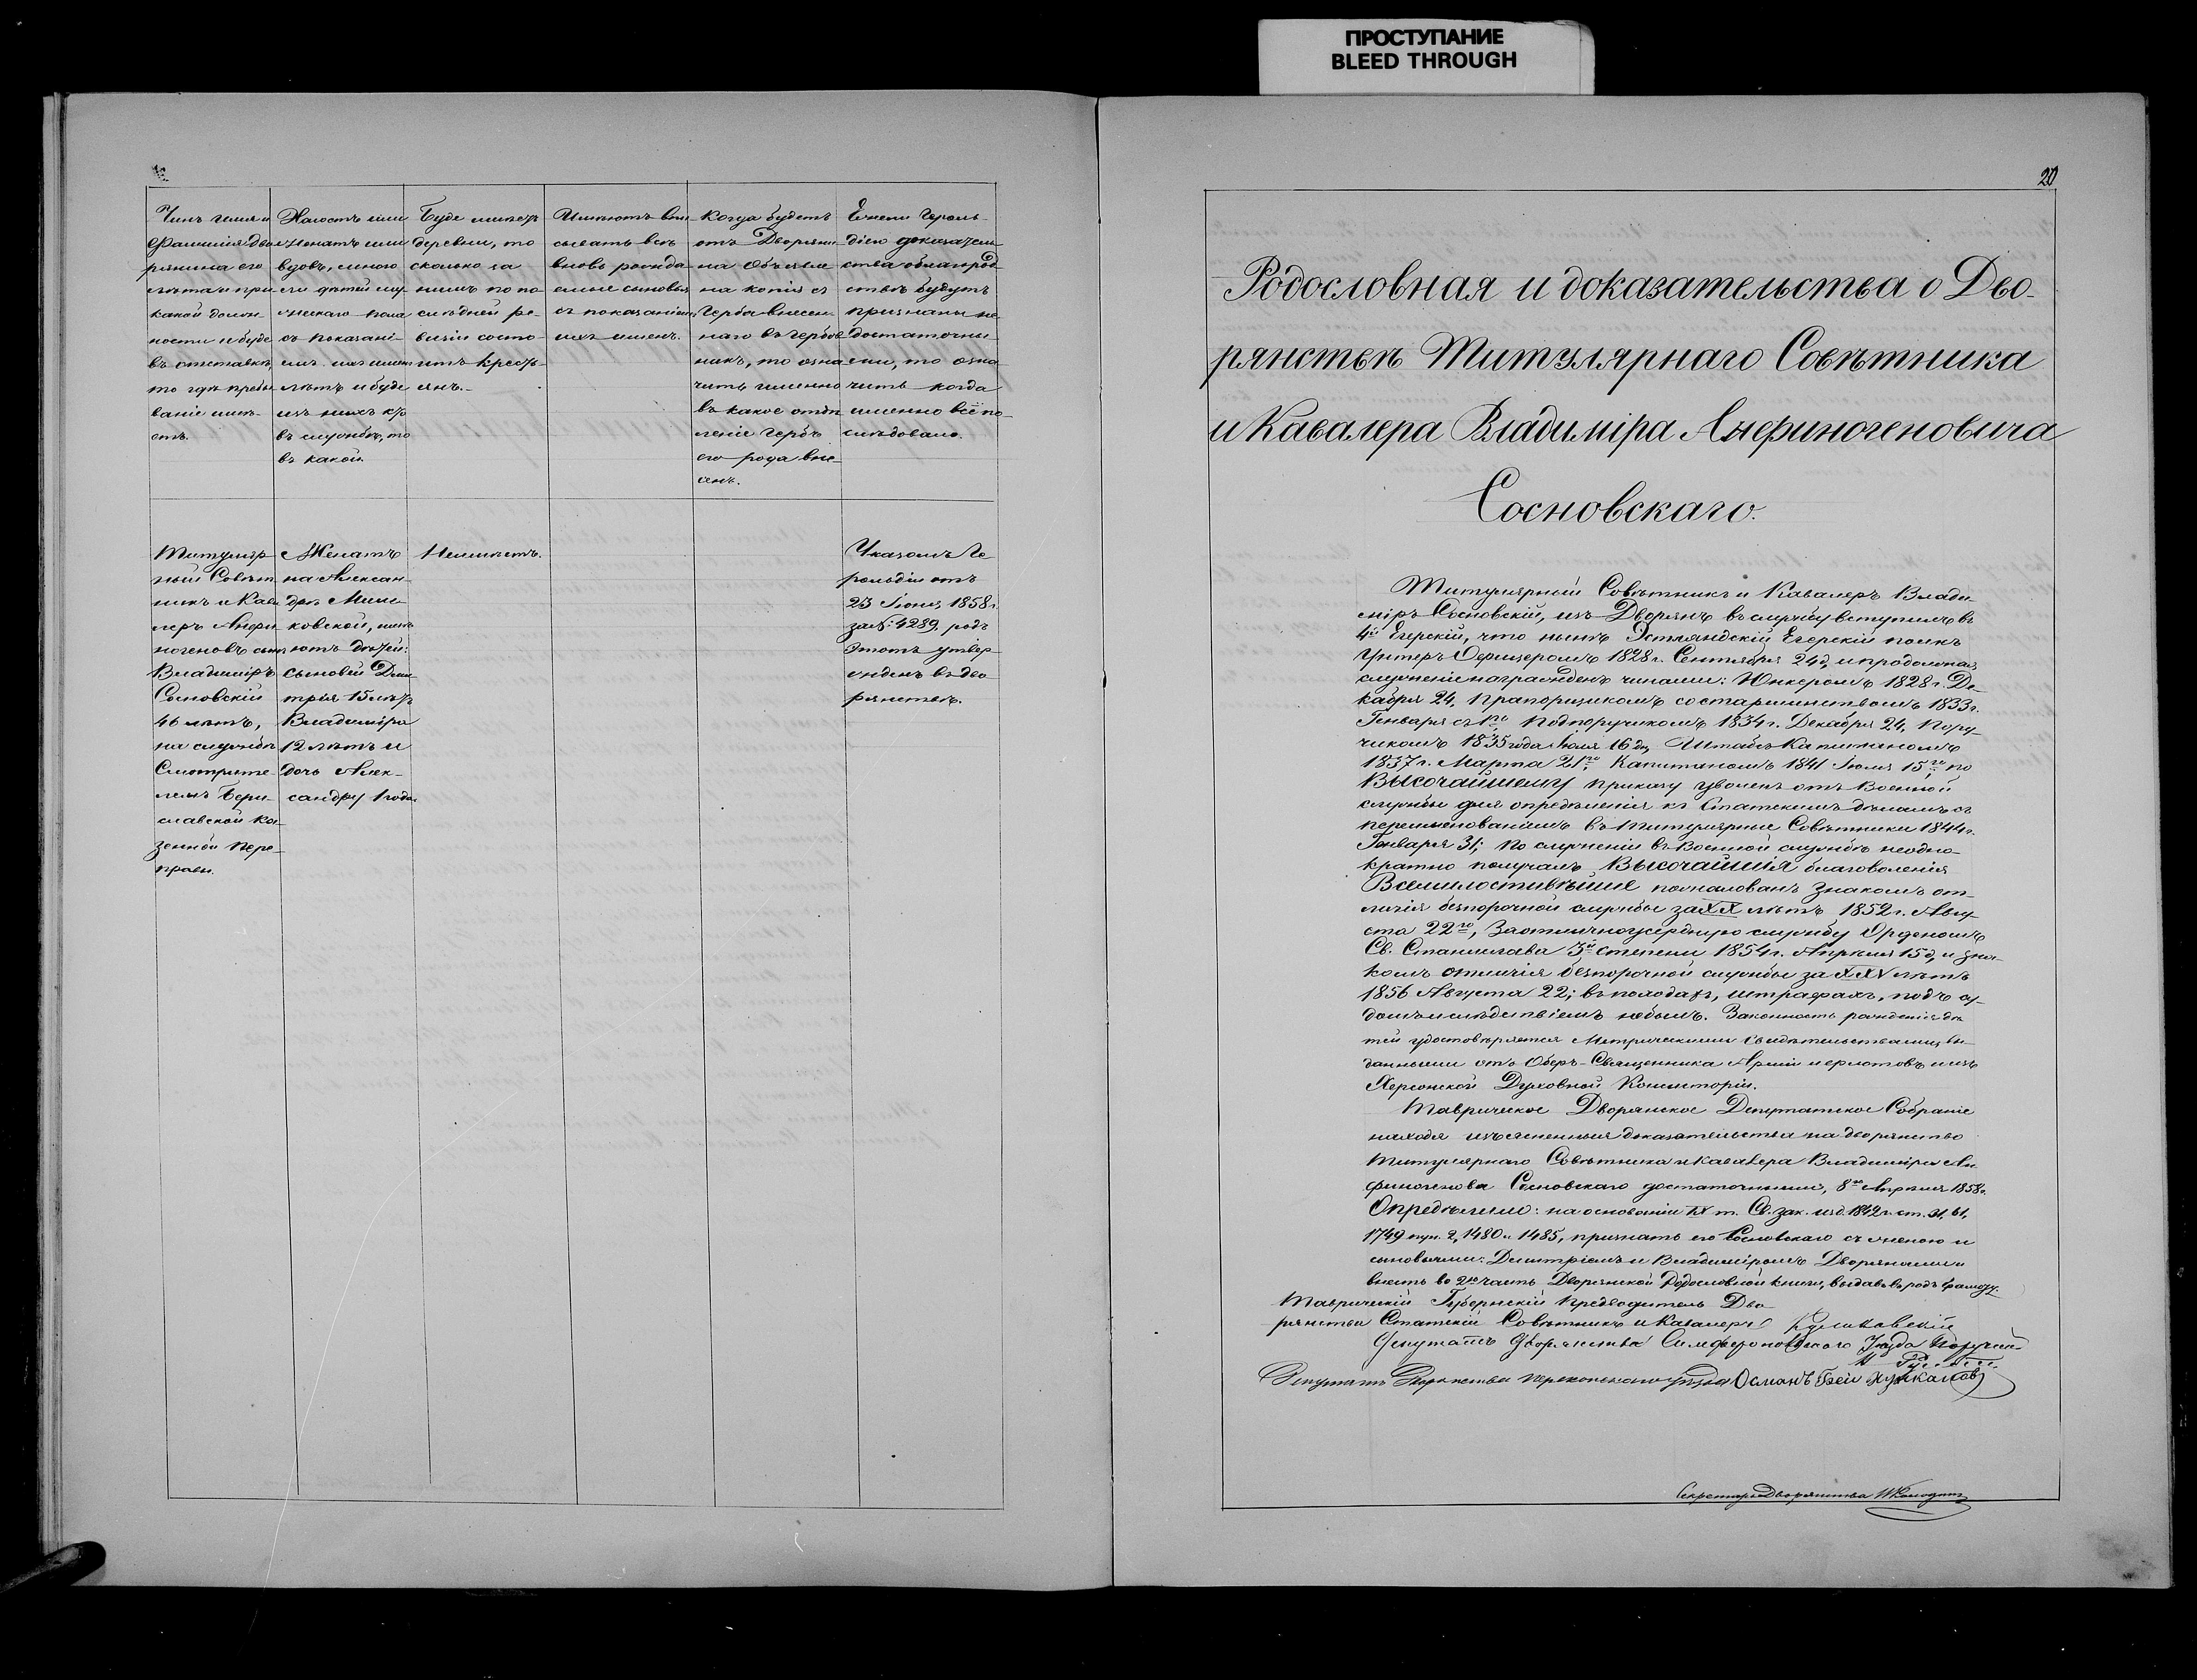 ПРОСТУПАНИЕ
BLEED THROUGH
Чинъ имя и
Фамилія Дво-
рянина его
лѣта и при
какой долж-
ности и буде
въ отставкѣ,
то гдѣ пребы
ваніе имѣ-
етъ.
Холостъ или
женатъ или
вдовъ, много
ли дѣтей му-
жескаго пола
съ показані-
емъ ихъ имен
лѣтъ и буде
изъ нихъ кто
въ службѣ, то
въ какой.
Буде имѣетъ
деревни, то
сколько за
нимъ по по-
слѣдней ре-
визіи состо-
итъ кресть-
янъ.
Имѣютъ впи
сывать всѣ
вновь рожда
емые сыновья
съ показаніем
ихъ именъ.
Когда будетъ
отъ Дворяни-
на объявле
на копія съ
Герба внесен-
наго въ Гербов
никъ, то озна
чить именно
въ какое отдѣ
леніе Гербъ
его рода вне-
сенъ.
Ежели Героль-
діею доказатель
ства о благород-
ствѣ будутъ
признаны не
достаточны-
ми, то озна
чить когда
именно всё по-
слѣдовало.
Титуляр
ный Совѣт
никъ и Кава
леръ Анфи-
ногеновъ сын
Владиміръ
Сосновскій
46 лѣтъ,
на службѣ
Смотрите-
лемъ Бери-
славской ка-
зенной пере-
правы.
Женатъ
на Алексан-
дрѣ
ковской, имѣ
ютъ дѣтей:
сыновей Дми
трія 15 лѣтъ
Владиміра
12 лѣтъ и
дочь Алек-
сандру 1 года
Неимѣетъ.
Указомъ Ге-
рольдіи отъ
23 Іюня 1858 г.
за №: 4289. родъ
этотъ утвер-
жденъ въ дво-
рянствѣ.
20
Родословная и доказательства о Дво-
рянствѣ Титулярнаго Совѣтника
и Кавалера Владиміра Анфиногеновича
Сосновскаго.
Титулярный Совѣтникъ и Кавалеръ Влади-
міръ Сосновскій, изъ Дворянъ въ службу вступилъ въ
4й Егерскій, что нынѣ Эстляндскій Егерскій полкъ
Унтеръ Офицеромъ 1828 г. Сентября 24 д, и продолжая
служеніе награжденъ чинами: Юнкеромъ 1828 г. Де-
кабря 24, Прапорщикомъ со старшинствомъ 1833 г.
Генваря съ 1го Подпоручикомъ 1834 г. Декабря 24, Пору-
чикомъ 1835 года Іюля 16 дн, Штабсъ Капитаномъ
1837 г. Марта 21го, Капитаномъ 1841 Іюля 15го, по
ВЫСОЧАЙШЕМУ приказу уволенъ отъ Военной
службы для опредѣленія къ Статскимъ дѣламъ съ
переименованіемъ въ Титулярные Совѣтники 1844 г.
Генваря 31; по служеніи въ Военной службѣ неодно-
кратно получалъ ВЫСОЧАЙШІЯ благоволенія
Всемилостивѣйше пожалованъ знакомъ от-
личія безпорочной службы за XX лѣтъ 1852 г. Авгу-
ста 22го, За отлично усердную службу Орденомъ
Св. Станислава 3й Степени 1854 г. Апрѣля 15 д, и зна-
комъ отличія безпорочной службы за XXV лѣтъ
1856 Августа 22; въ походахъ, штрафахъ, подъ су-
домъ и слѣдствіемъ небылъ. Законность рожденія дѣ
тей удостовѣряется Метрическими свидѣтельствами, вы-
данными отъ Оберъ-Священника Арміи и флотовъ и изъ
Херсонской Духовной Консисторіи.
Таврическое Дворянское Депутатское Собраніе
находя изъясненныя доказательства на дворянство
Титулярнаго Совѣтника и Кавалера Владиміра Ан-
финогенова Сосновскаго достаточными, 8го Апрѣля 1858 г.
Опредѣлило: на основаніи IX т. Св. зак. изд. 1842 г. ст. 61,
1749 пун. 2, 1480 и 1485, признать его Сосновскаго съ женою и
сыновьями: Дмитріемъ и Владиміромъ Дворянами и
внесть во 2ю часть Дворянской Родословной книги, выдавъ въ родъ грамоту.
Таврическій Губернскій Предводитель Дво-
рянства Статскій Совѣтникъ и Кавалеръ
Депутатъ Дворянства Симферопольскаго Уѣзда Поручик
Депутатъ Дворянства Перекопскаго уѣзда Османъ Бей
Секретарь Дворянства